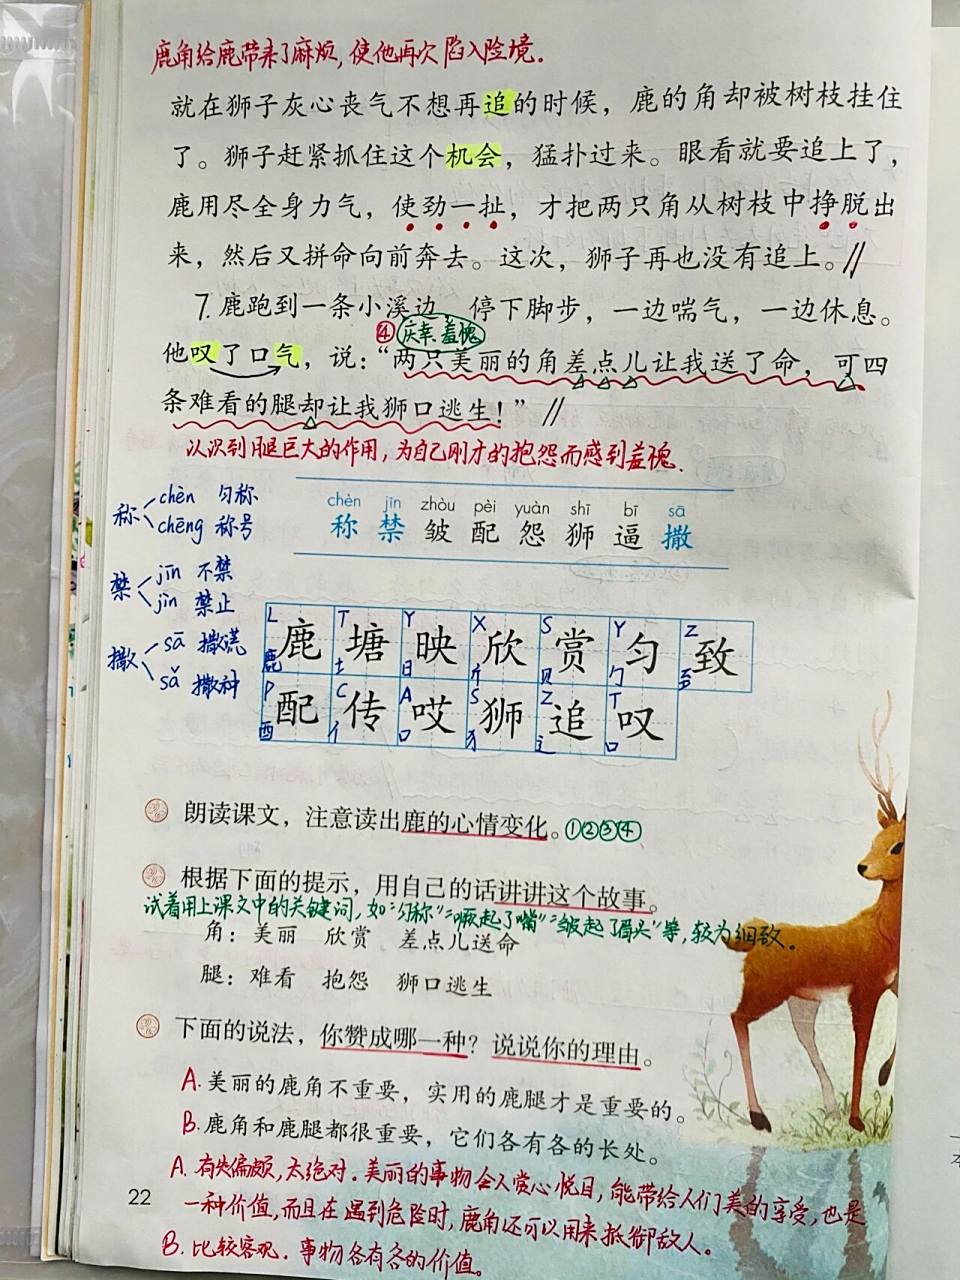 鹿角给鹿带来了麻烦,使他再次陷入险境.
就在狮子灰心丧气不想再追的时候，鹿的角却被树枝挂住
了。狮子赶紧抓住这个机会，猛扑过来。眼看就要追上了，
鹿用尽全身力气，使劲一扯，才把两只角从树枝中挣脱出
来，然后又拼命向前奔去。这次，狮子再也没有追上。//
7.鹿跑到一条小溪边，停下脚步，一边喘气，一边休息。
④ 庆幸.羞愧
他叹了口气，说：“两只美丽的角差点儿让我送了命，可四
条难看的腿却让我狮口逃生！”//
认识到腿巨大的作用,为自己刚才的抱怨而感到羞愧.
称 chèn 匀称
chēng 称号
禁 jīn 不禁
jìn 禁止
撒 sā 撒谎
sǎ 撒种
chèn jīn zhòu pèi yuàn shī bī sā
称 禁 皱 配 怨 狮 逼 撒
L T Y X S Y Z
鹿 塘 映 欣 赏 匀 致
鹿 土 日 斤 贝 勹 至
P C A S Z T
配 传 哎 狮 追 叹
酉 亻 口 犭 辶 口
朗读课文，注意读出鹿的心情变化。①②③④
根据下面的提示，用自己的话讲讲这个故事。
试着用上课文中的关键词,如“匀称”“噘起了嘴”“皱起了眉头”等,较为细致.
角：美丽 欣赏 差点儿送命
腿：难看 抱怨 狮口逃生
下面的说法，你赞成哪一种？说说你的理由。
A.美丽的鹿角不重要，实用的鹿腿才是重要的。
B.鹿角和鹿腿都很重要，它们各有各的长处。
A.有失偏颇,太绝对.美丽的事物令人赏心悦目,能带给人们美的享受,也是
一种价值,而且在遇到危险时,鹿角还可以用来抵御敌人。
B.比较客观.事物各有各的价值。
22